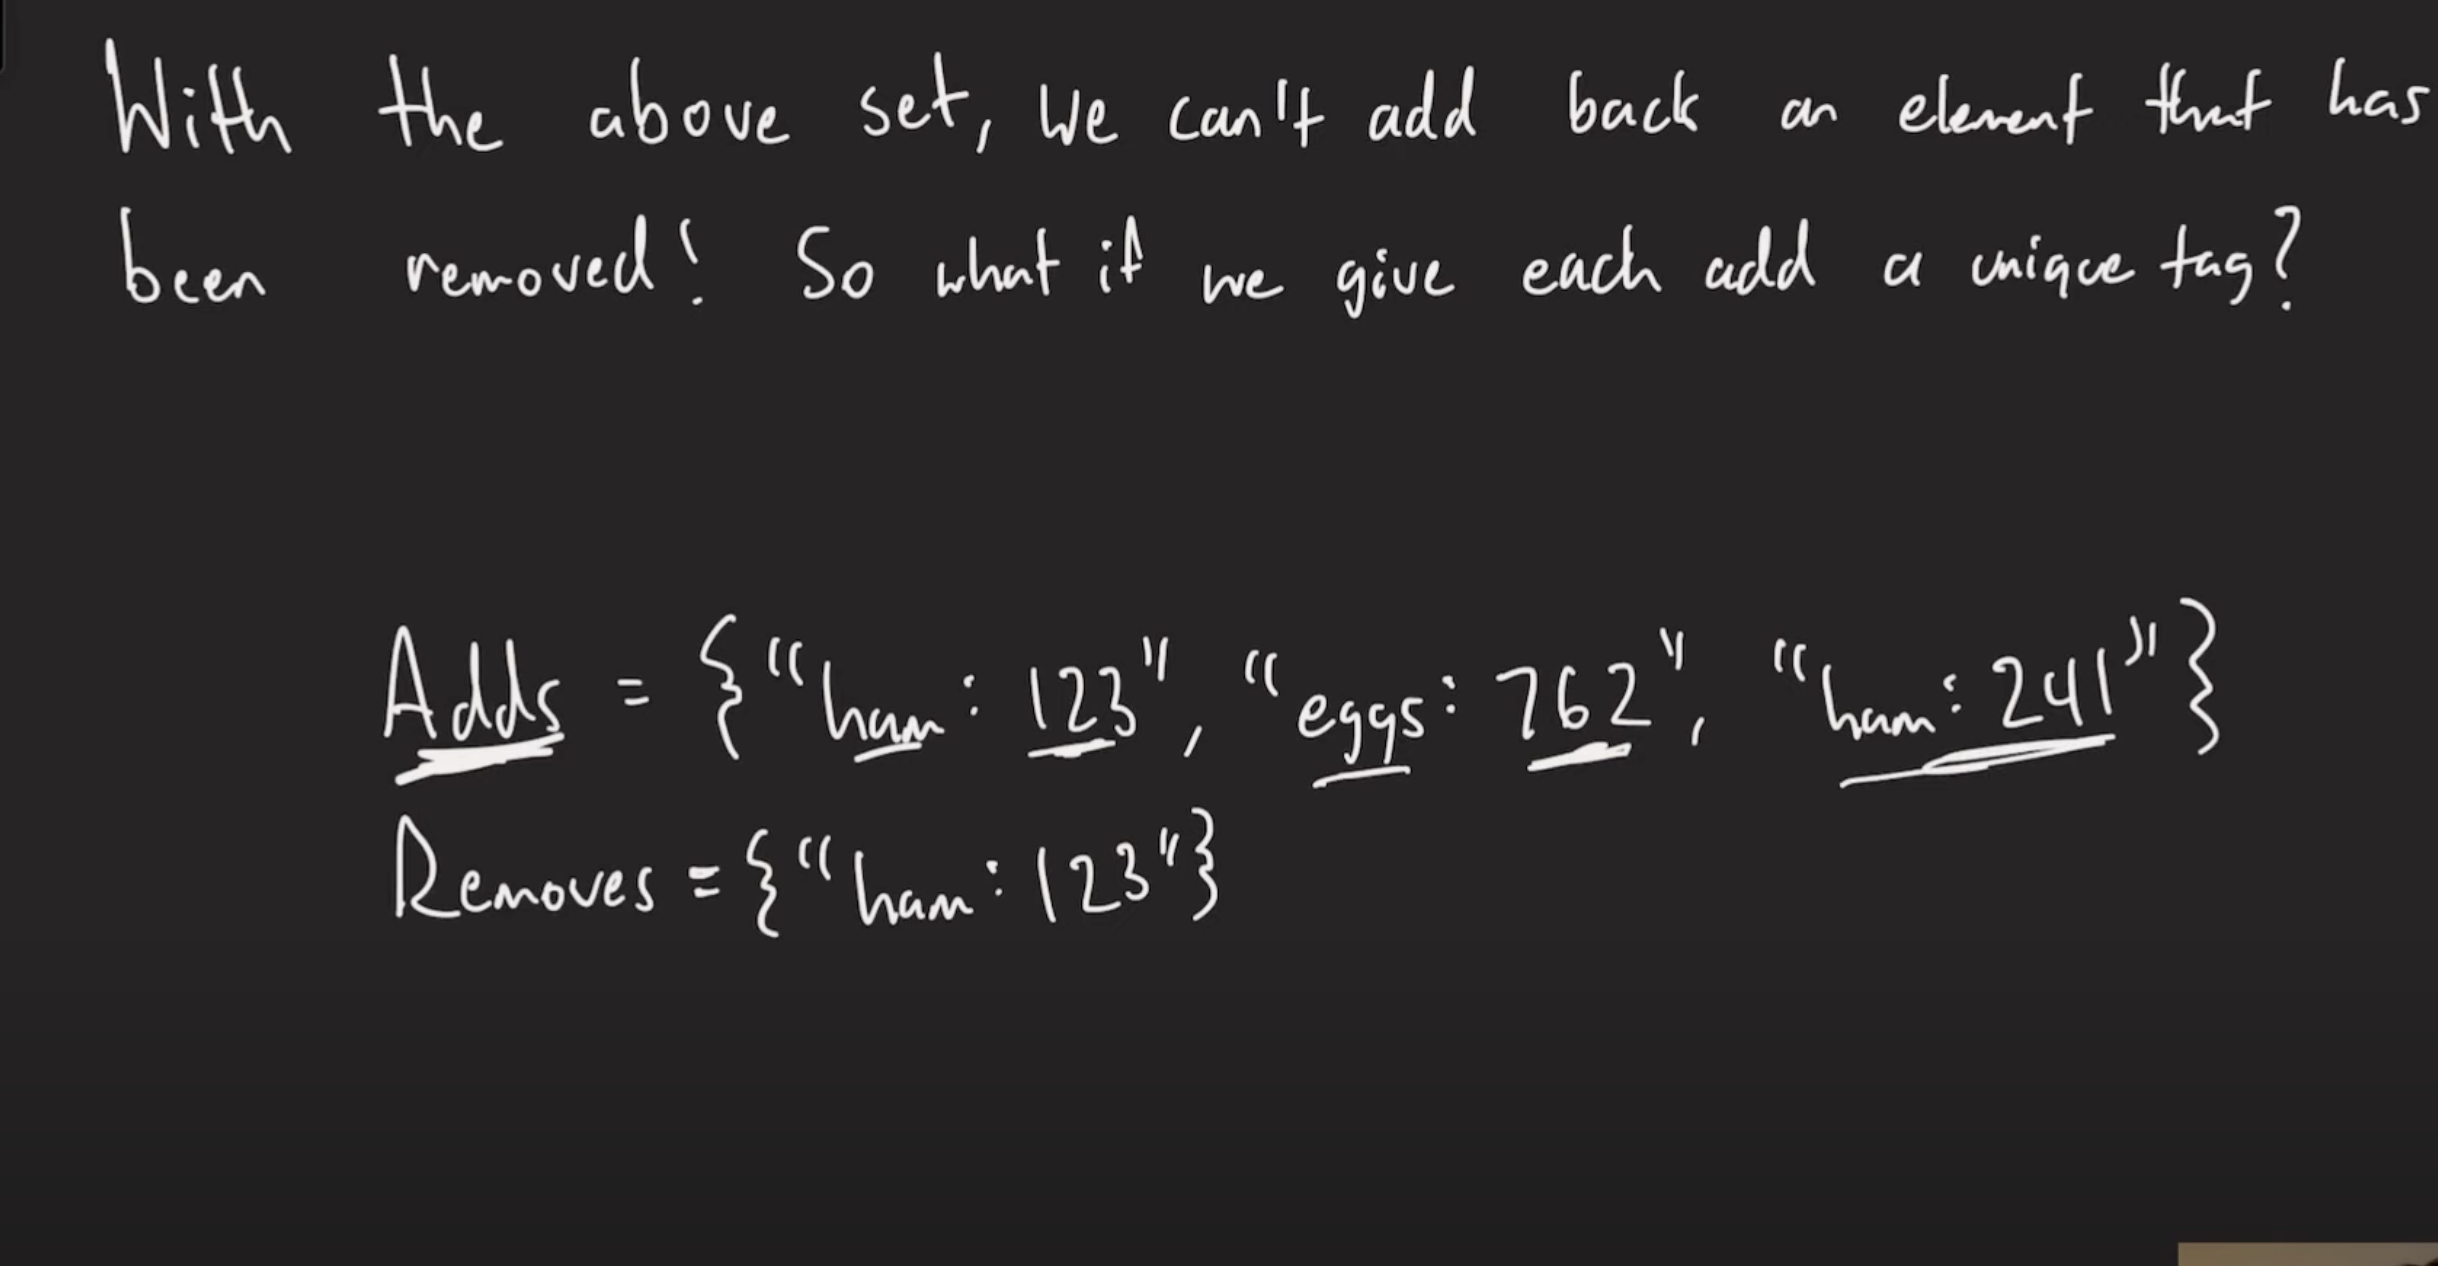 With the above set, we can't add back an element that has
been removed! So what if we give each add a unique tag?
Adds = {"ham: 123", "eggs: 762", "ham: 241"}
Removes = {"ham: 123"}